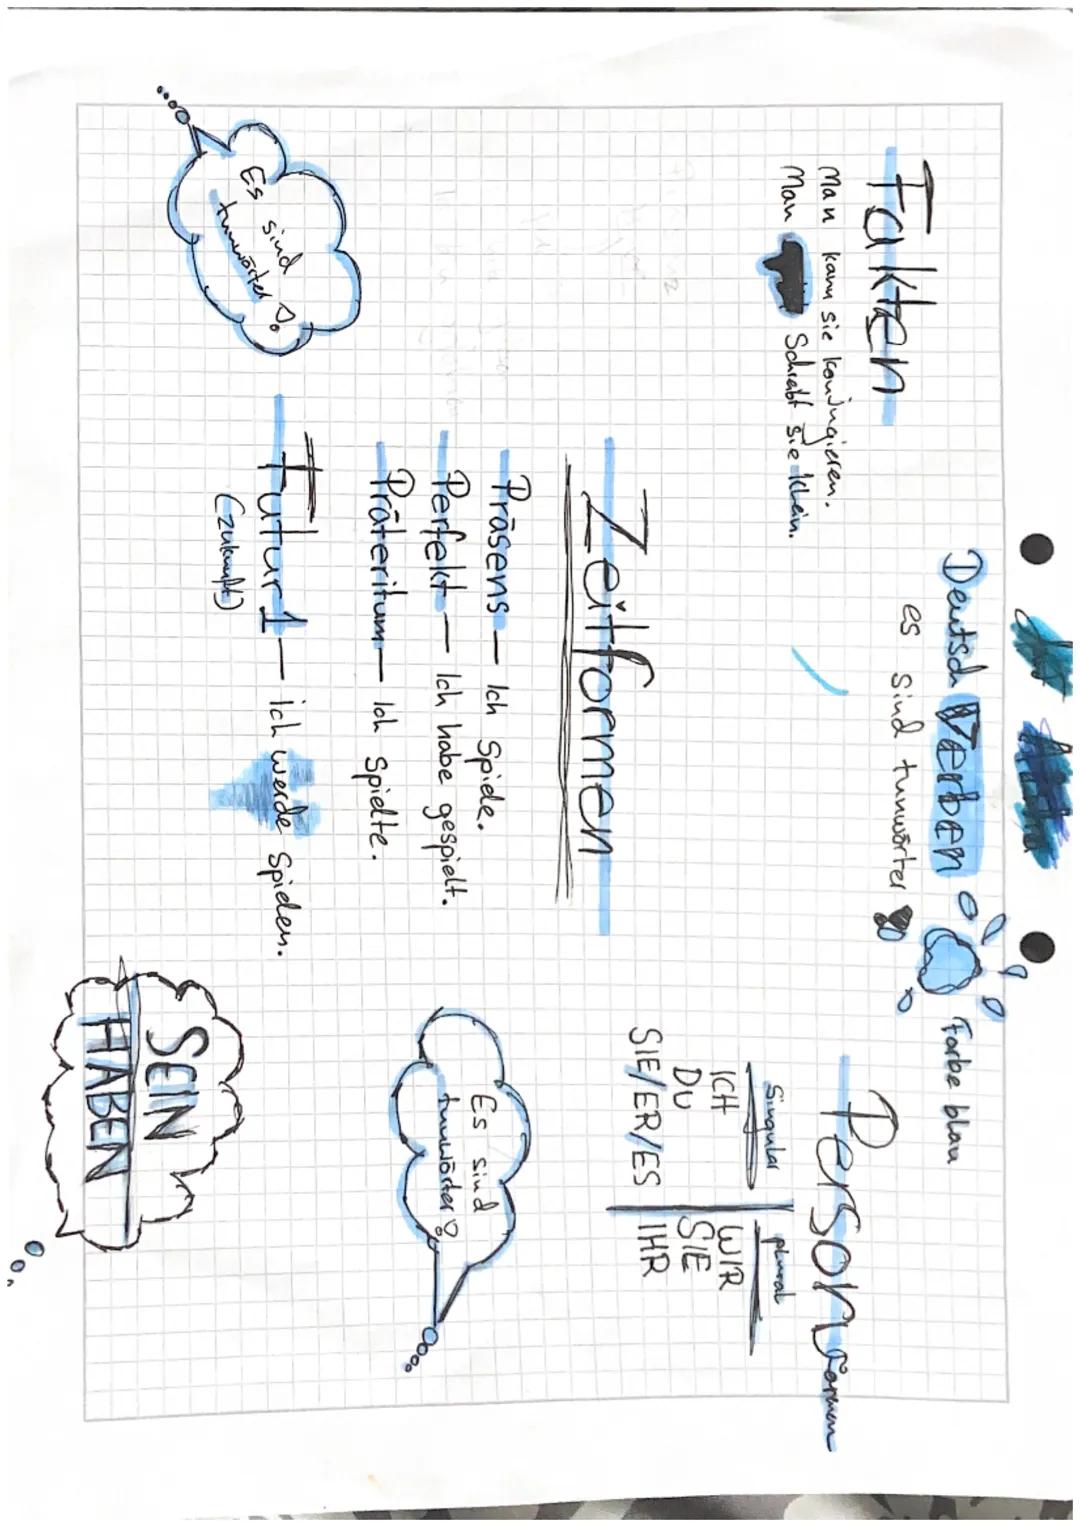 Deutsch Verben Farbe blau
es sind tunwörter
Fakten
Man kann sie konjugieren.
Man Schreibt sie klein.
Personformen
Singular plural
ICH WIR
DU SIE
SIE/ER/ES IHR
Zeitformen
Präsens — Ich Spiele.
Perfekt — Ich habe gespielt.
Präteritum — Ich Spielte.
Futur 1 — ich werde Spielen.
(zukunft)
Es sind
tunwörter
Es sind
tunwörter
SEIN
HABEN